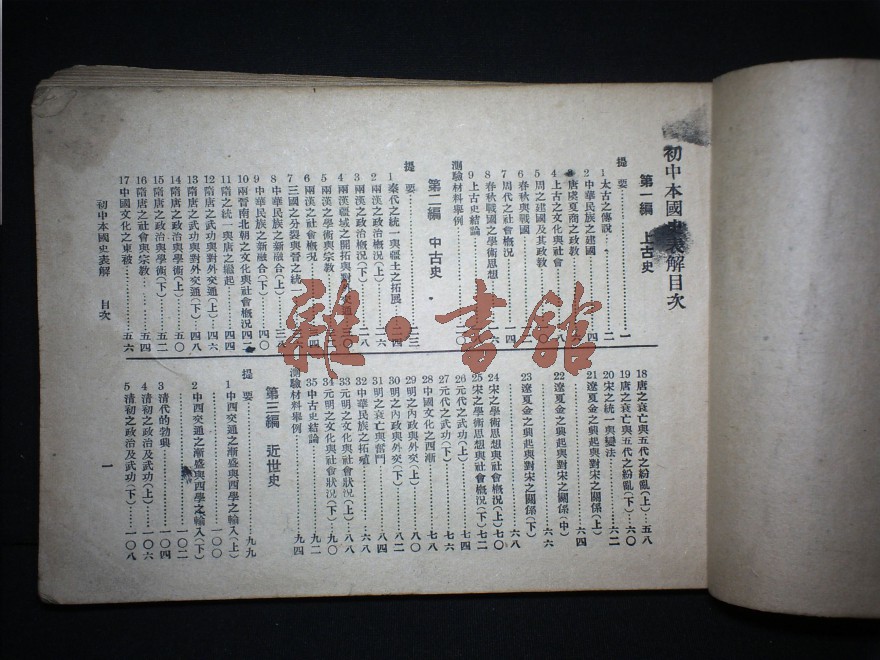 初中本國史表解目次
第一編 上古史
提 要……一
1 太古之傳說……二
2 中華民族之建國……四
3 唐虞夏商之政教
4 上古之文化與社會
5 周之建國及其政教
6 春秋與戰國
7 周代之社會概況……一四
8 春秋戰國之學術思想
9 上古史結論
測驗材料舉例……二〇
第二編 中古史
提 要……二三
1 秦代之統一與疆土之拓展……二四
2 兩漢之政治概況(上)……二六
3 兩漢之政治概況(下)……二八
4 兩漢疆域之開拓與對外交通
5 兩漢之學術與宗教
6 兩漢之社會概況
7 三國之分裂與晉之統一
8 中華民族之新融合(上)……三八
9 中華民族之新融合(下)……四〇
10 兩晉南北朝之文化與社會概況……四二
11 隋之統一與唐之繼起……四四
12 隋唐之武功與對外交通(上)……四六
13 隋唐之武功與對外交通(下)……四八
14 隋唐之政治與學術(上)……五〇
15 隋唐之政治與學術(下)……五二
16 隋唐之社會與宗教……五四
17 中國文化之東被……五六
18 唐之衰亡與五代之紛亂(上)……五八
19 唐之衰亡與五代之紛亂(下)……六〇
20 宋之統一與變法……六二
21 遼夏金之興起與對宋之關係(上)……六四
22 遼夏金之興起與對宋之關係(中)……六六
23 遼夏金之興起與對宋之關係(下)……六八
24 宋之學術思想與社會概況(上)……七〇
25 宋之學術思想與社會概況(下)……七二
26 元代之武功(上)……七四
27 元代之武功(下)……七六
28 中國文化之西漸……七八
29 明之內政與外交(上)……八〇
30 明之內政與外交(下)……八二
31 明之衰亡與奮鬥……八四
32 中華民族之拓殖……八六
33 元明之文化與社會狀況(上)……八八
34 元明之文化與社會狀況(下)……九〇
35 中古史結論……九二
測驗材料舉例……九四
第三編 近世史
提 要……九九
1 中西交通之漸盛與西學之輸入(上)……一〇〇
2 中西交通之漸盛與西學之輸入(下)……一〇二
3 清代的勃興……一〇四
4 清初之政治及武功(上)……一〇六
5 清初之政治及武功(下)……一〇八
初中本國史表解 目次
一
雜·書館